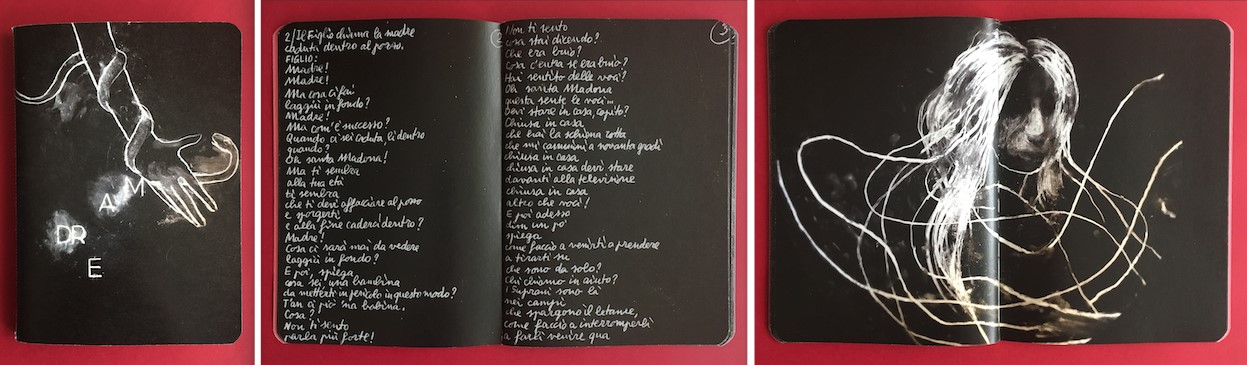 M
A
DR
E
2/Il Figlio chiama la madre
caduta dentro al pozzo.
FIGLIO:
Madre!
Madre!
Ma cosa ci fai
laggiù in fondo?
Madre!
Ma com'è successo?
Quando ci sei caduta, lì dentro
quando?
Oh santa Madona!
Ma ti sembra
alla tua età
ti sembra
che ti devi affacciare al pozzo
e sporgerti
e alla fine caderci dentro?
Madre!
Cosa ci sarà mai da vedere
laggiù in fondo?
E poi, spiega
cosa sei, una bambina
da metterti in pericolo in questo modo?
T'an ci piò 'na babina.
Cosa?
Non ti sento
parla più forte!
2
3
Non ti sento
cosa stai dicendo?
Che era buio?
Cosa c'entra se era buio?
Hai sentito delle voci?
Oh santa Madona
questa sente le voci...
Devi stare in casa, capito?
Chiusa in casa
che hai la schiena rotta
che mi cammini a novanta gradi
chiusa in casa
chiusa in casa devi stare
davanti alla televisione
chiusa in casa
altro che voci!
E poi adesso
dim un pò
spiega
come faccio a venirti a prendere
a tirarti su
che sono da solo?
Chi chiamo in aiuto?
I Suprani sono là
nei campi
che spargono il letame,
come faccio a interromperli
a farli venire qua